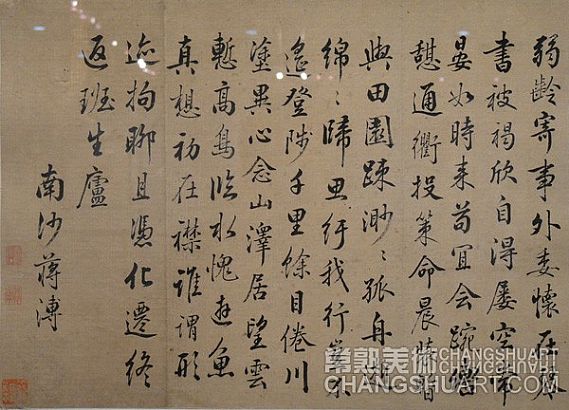 弱齡寄事外委懷在琴
書被褐欣自得屢空常
晏如時来苟宜會踠轡
憇通衢投策命晨旅暫
與田園疎渺〻孤舟逝
綿〻歸思紆我行豈不
遙登陟千里餘目倦川
塗異心念山澤居望雲
慙高鳥臨水愧遊魚
真想初在襟誰謂形
迹拘聊且憑化遷終
返班生廬
南沙蔣溥
常熟美術CHANGSHUART
CHANGSHUART.COM